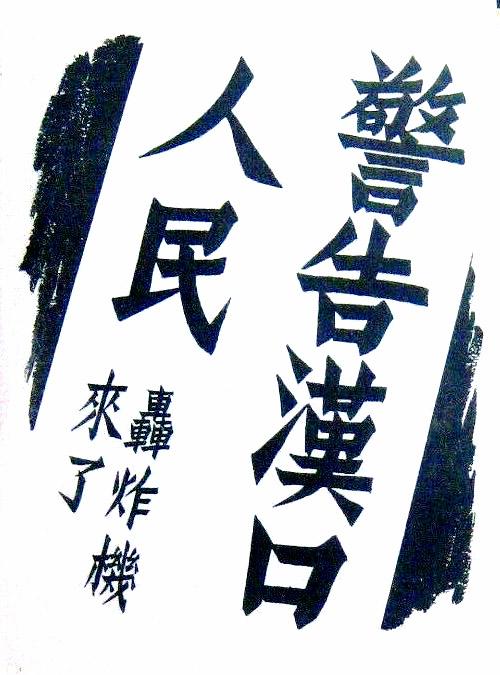 警告漢口
人民
轟炸機
來了